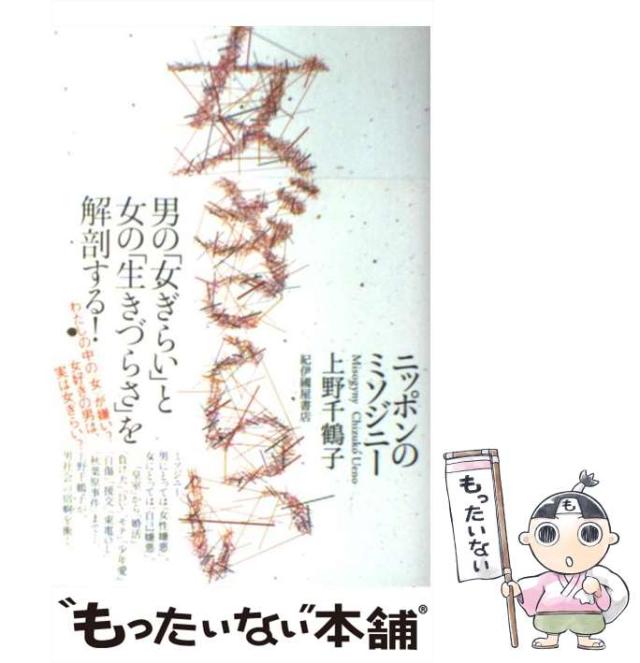 女ぎらい
ニッポンの
ミソジニー
Misogyny Chizuko Ueno
上野千鶴子
紀伊國屋書店
男の「女ぎらい」と
女の「生きづらさ」を
解剖する！
わたしの中の「女」が嫌い？
女好きの男は、
実は女ぎらい？
ミソジニー。
男にとっては「女性嫌悪」、
女にとっては「自己嫌悪」。
「皇室」から「婚活」
「負け犬」「DV」「モテ」「少年愛」
「自傷」「援交」「東電OL」
「秋葉原事件」まで…。
上野千鶴子が
男社会の宿痾を衝く
もったいない
"もったいない"本舗®